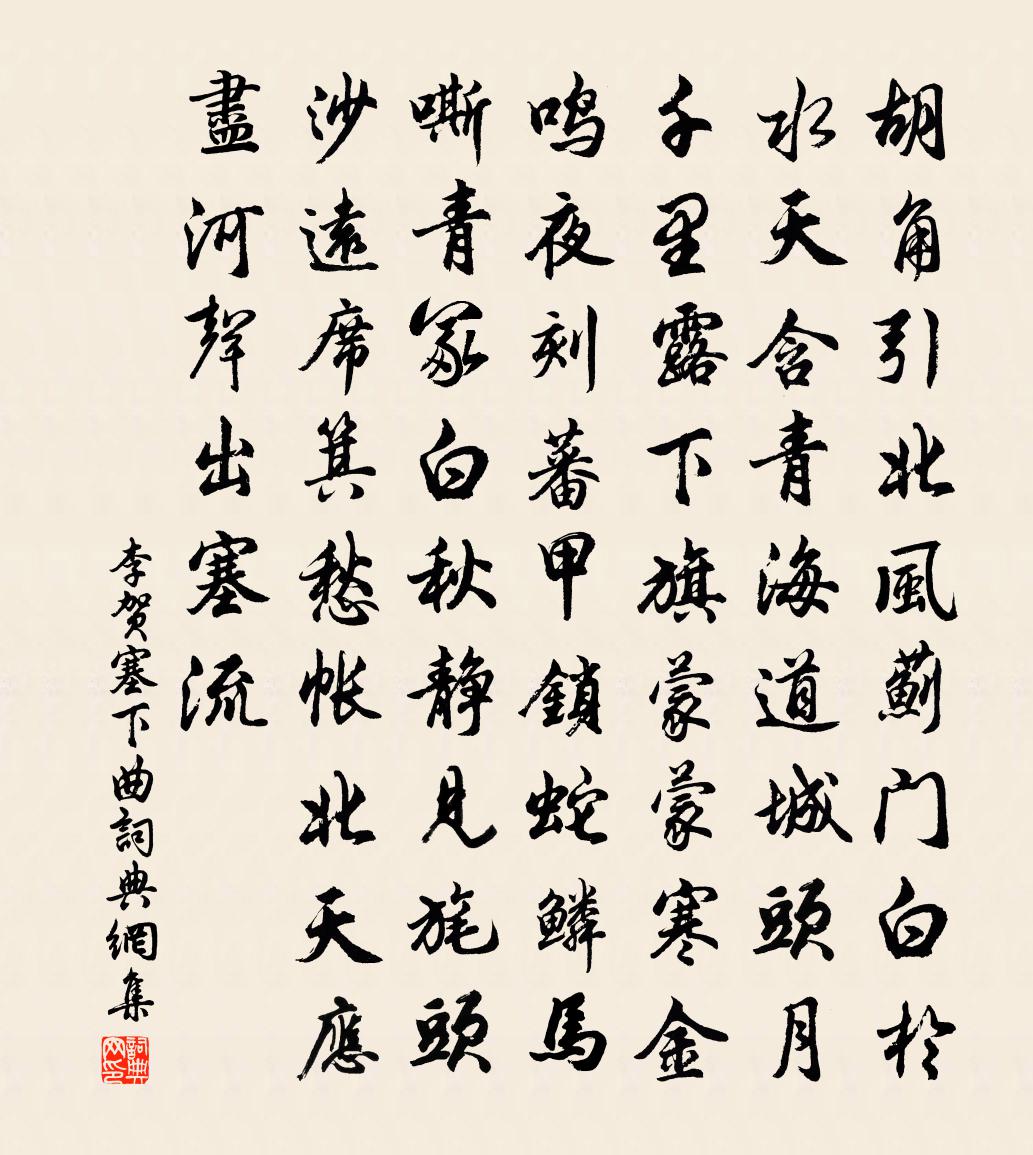 胡角引北風薊门白於
水天含青海道城頭月
千里露下旗蒙蒙寒金
鸣夜刻蕃甲鎖蛇鱗馬
嘶青冢白秋静見旄頭
沙遠席箕愁帐北天應
盡河聲出塞流
李贺塞下曲詞典網集
詞典网印